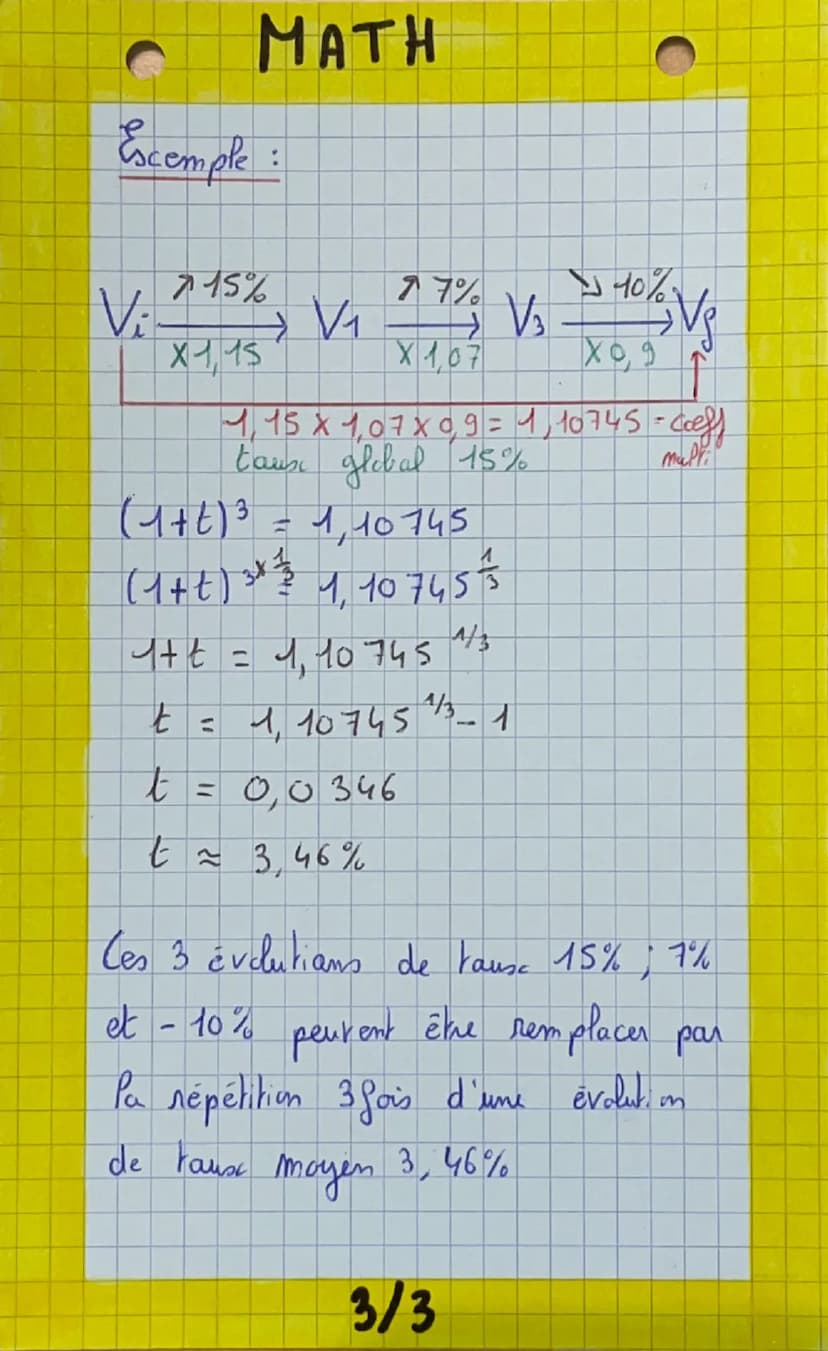 MATH
Exemple :
↗15% ↗7% ↘10%
Vi → V1 → V3 → Vf
×1,15 ×1,07 ×0,9
1,15 × 1,07 × 0,9 = 1,10745 = coeff
taux global 15% multi
(1+t)³ = 1,10745
(1+t)^(3×1/3) = 1,10745^(1/3)
1+t = 1,10745^(1/3)
t = 1,10745^(1/3) - 1
t = 0,0346
t ≈ 3,46%
Ces 3 évolutions de taux 15% ; 7%
et -10% peuvent être remplacer par
la répétition 3 fois d'une évolution
de taux moyen 3,46%
3/3